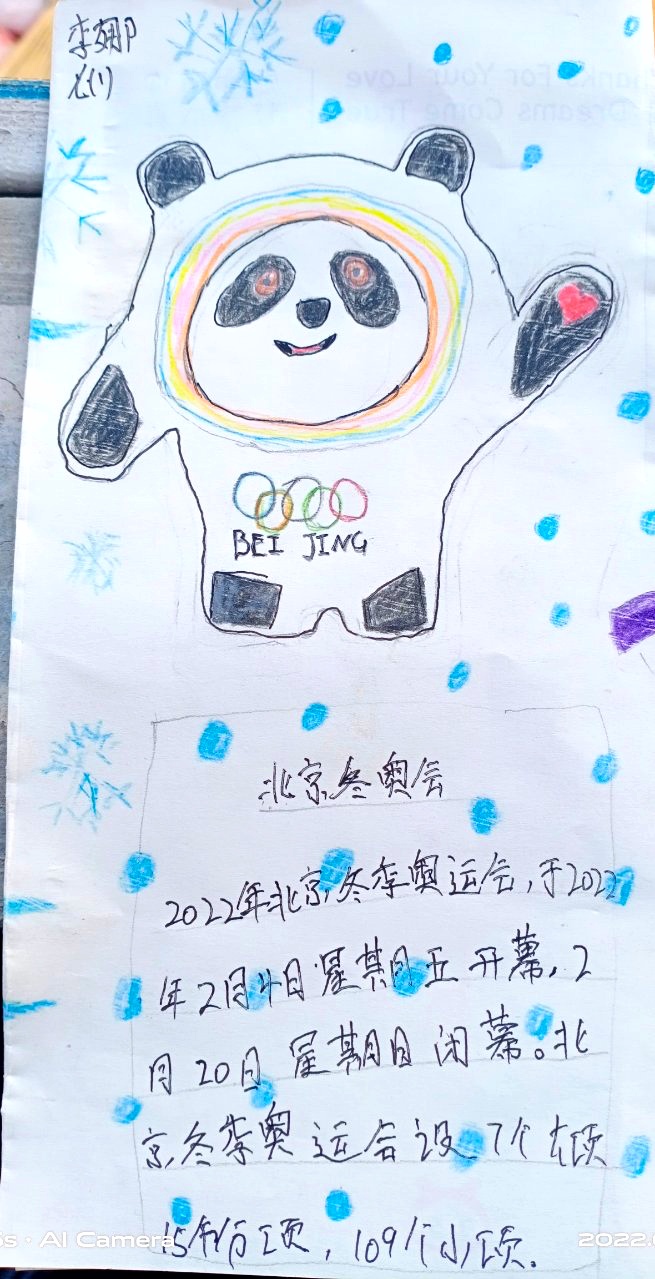 李娜
Thanks For Your Love
Dreams Come True
BEI JING
北京冬奥会
2022年北京冬季奥运会,于2022
年2月4日星期五开幕,2
月20日星期日闭幕。北
京冬季奥运会设7个大项
15个分项,109个小项.
AI Camera
2022.